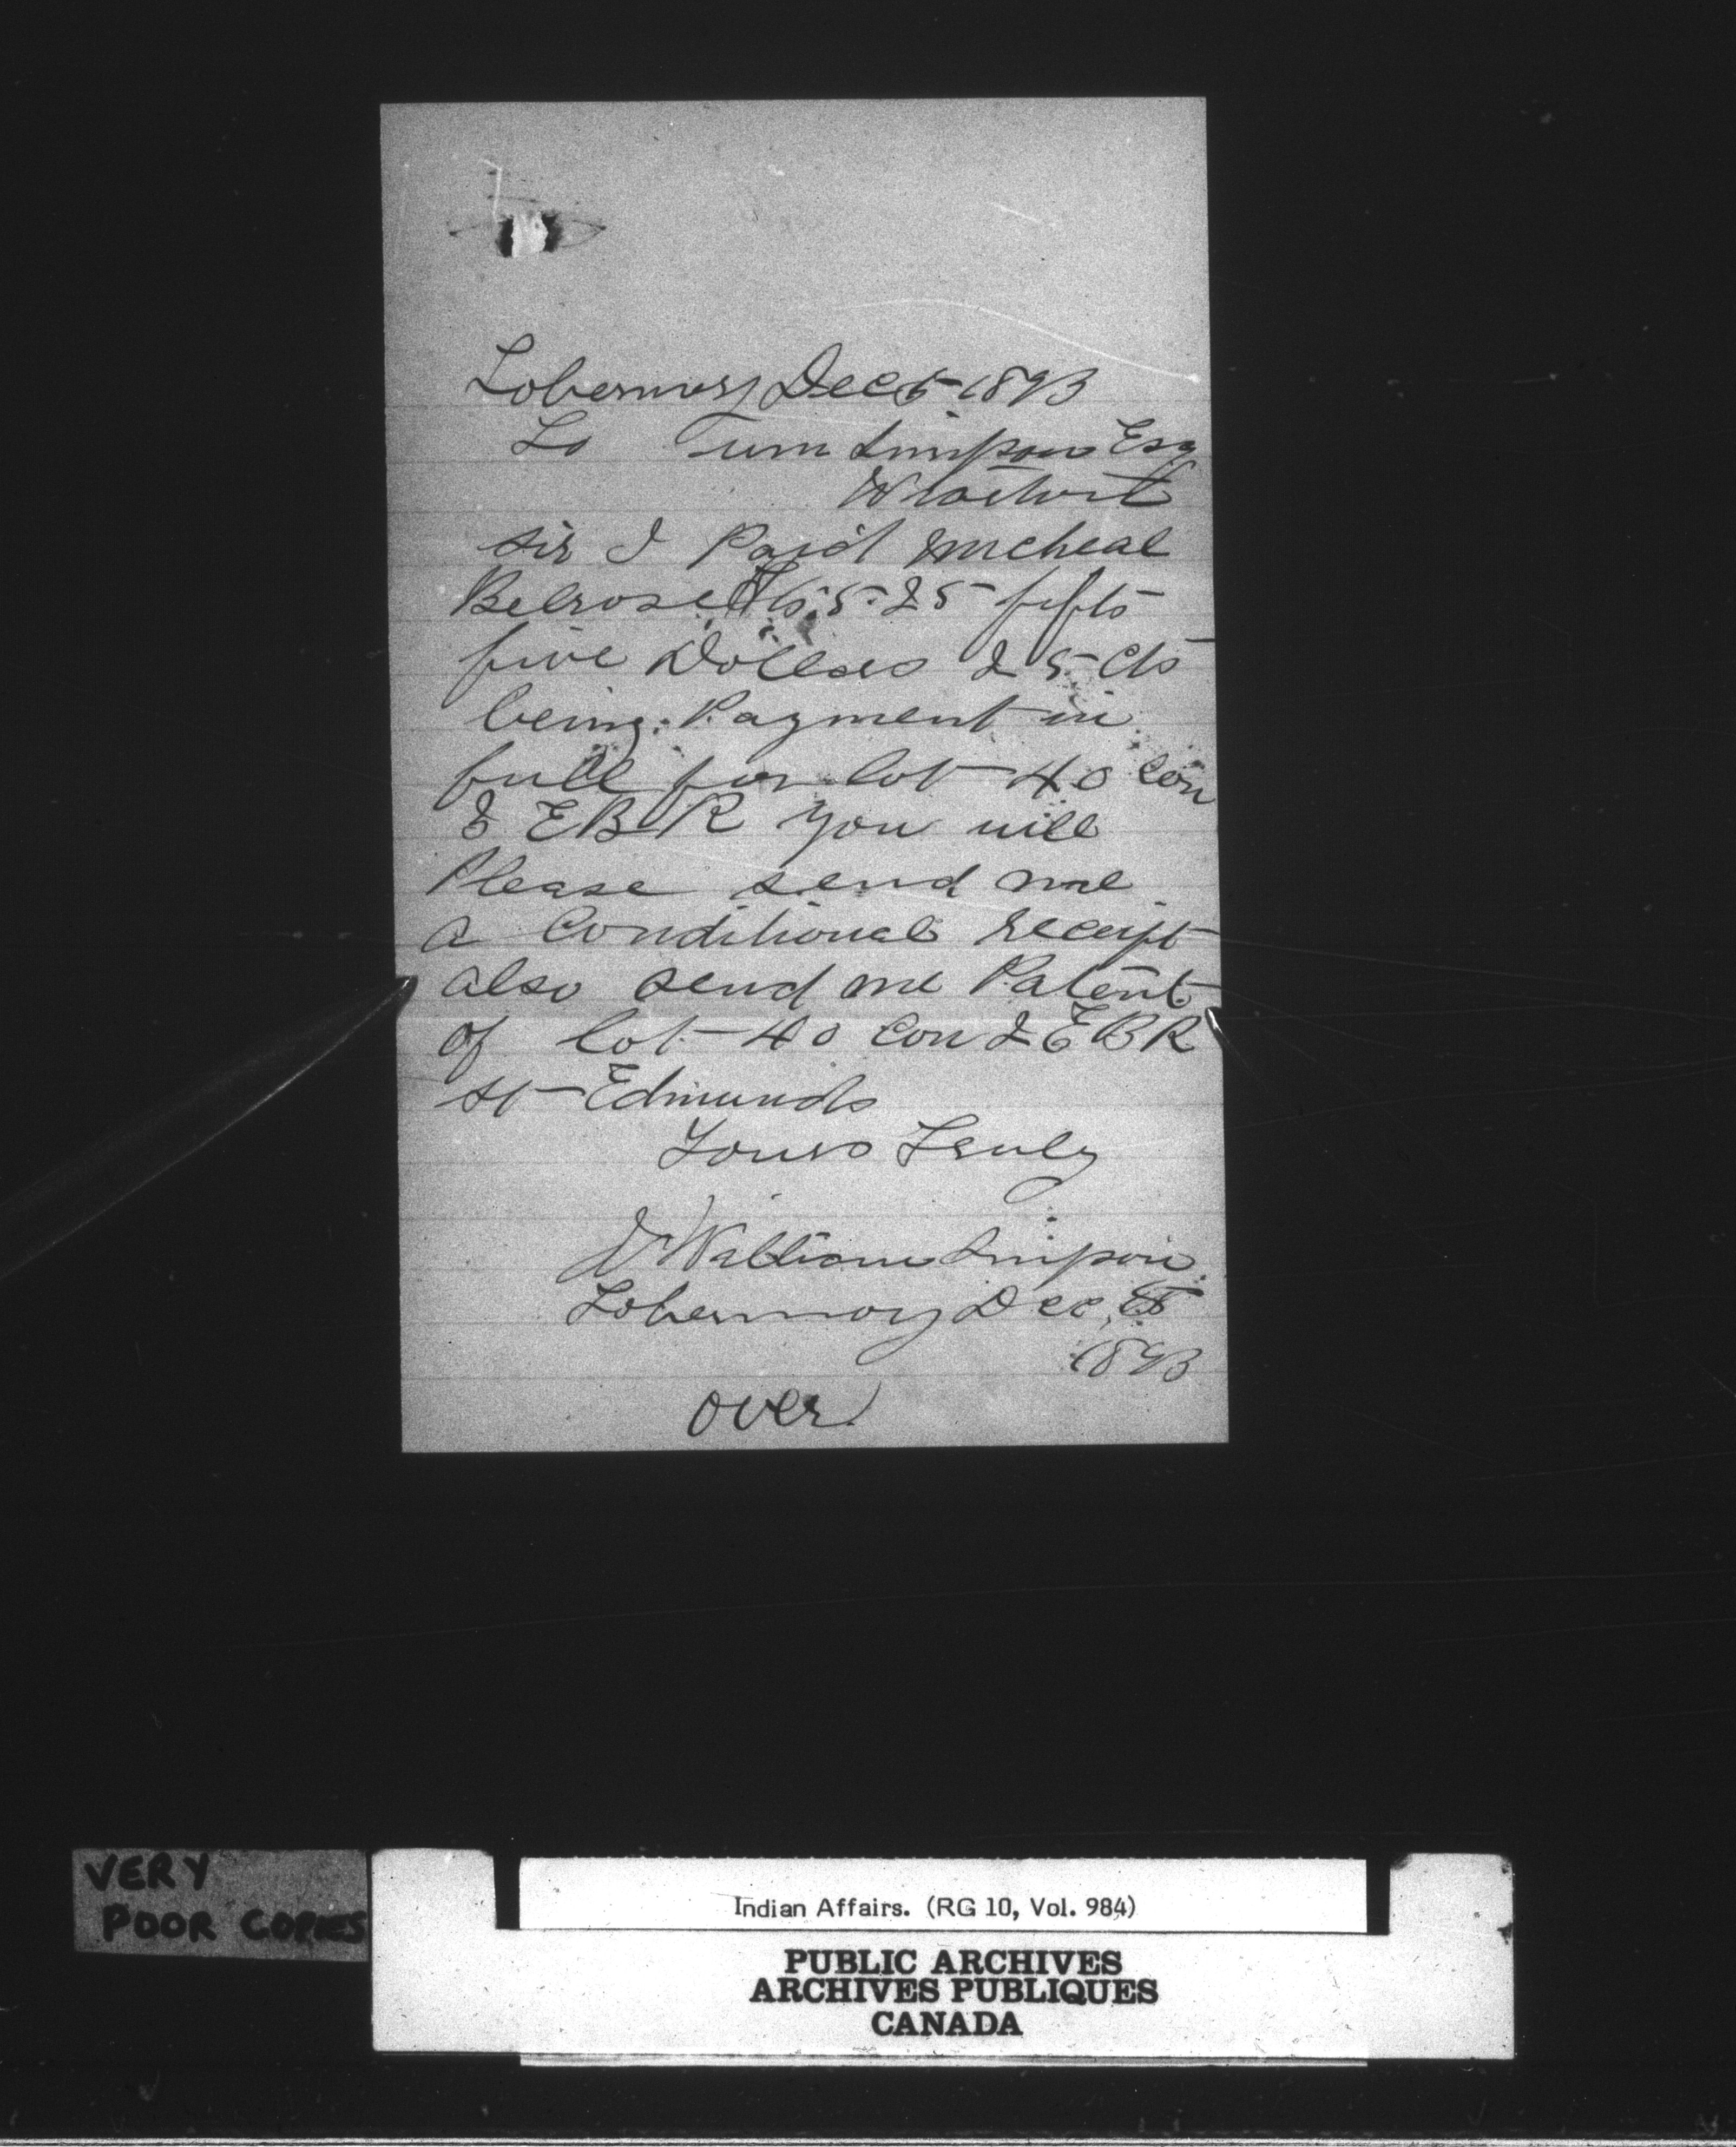 Tobermory Dec 5 1893
To Wm Simpson Esq
Wiarton
Sir I Paid Micheal
Belrose $55.25 fifty
five Dollars 25 cts
being Payment in
full for lot 40 Con
2 EBR you will
Please send me
a Conditional receipt
also send me Patent
of lot 40 Con 2 EBR
St Edmunds
Yours Truly
William Simpson
Tobermory Dec 5
1893
over
VERY
POOR COPIES
Indian Affairs. (RG 10, Vol. 984)
PUBLIC ARCHIVES
ARCHIVES PUBLIQUES
CANADA